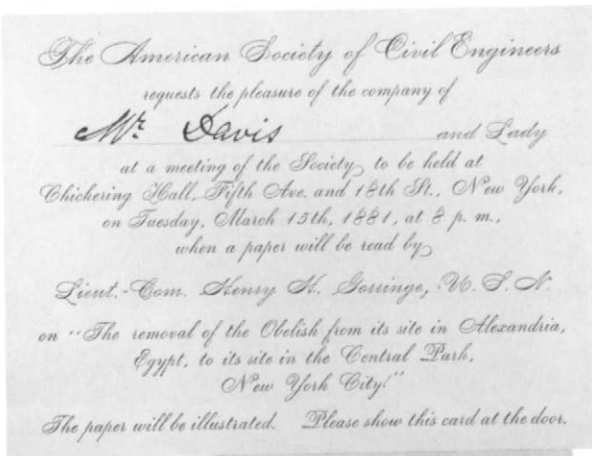 The American Society of Civil Engineers
requests the pleasure of the company of
Mr. Davis and Lady
at a meeting of the Society to be held at
Chickering Hall, Fifth Ave. and 18th St., New York,
on Tuesday, March 15th, 1881, at 8 p.m.,
when a paper will be read by
Lieut.-Com. Henry H. Gorringe, U. S. N.
on "The removal of the Obelisk from its site in Alexandria,
Egypt, to its site in the Central Park,
New York City."
The paper will be illustrated. Please show this card at the door.